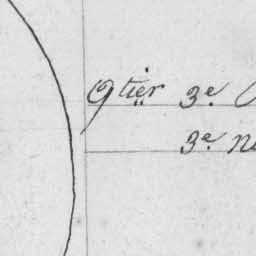 Qtier 3e.
3e.